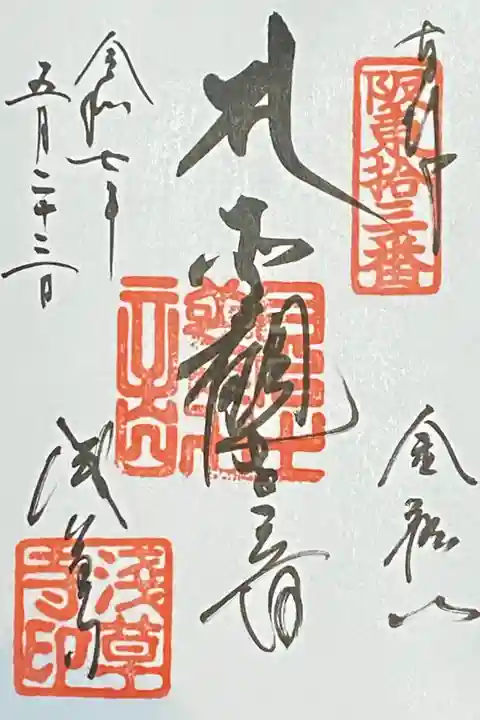 奉拝
阪東拾三番
金龍山
観音
令和七年
五月二十三日
浅草寺
淺草
寺印